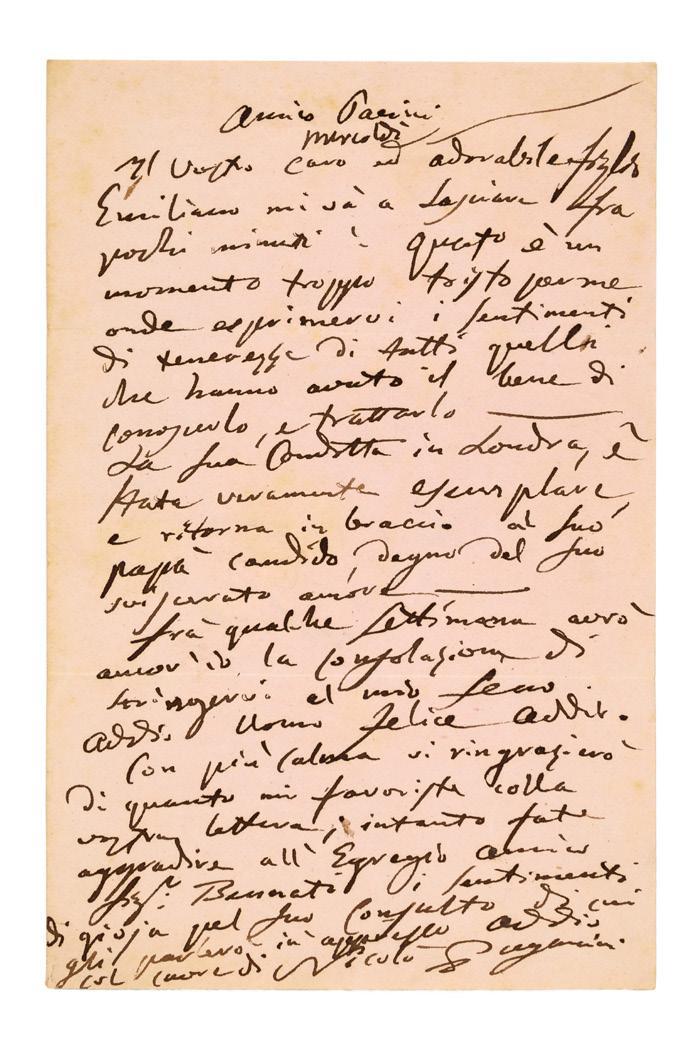 Amico Pacini
mercoldì
Il Vostro caro ed adorabile figlio
Emiliano mi và a lasciare fra
pochi minuti: Questo è un
momento troppo tristo per me
onde esprimervi i sentimenti
di tenerezza di tutti quelli
che hanno avuto il bene di
conoscerlo, e trattarlo
La sua Condotta in Londra, è
stata veramente esemplare,
e ritorna in braccio al suo
papà candido, degno del suo
sviscerato amore
frà qualche settimana avrò
ancor'io la consolazione di
stringervi al mio seno.
Addio Uomo felice addio.
Con più calma vi ringrazierò
di quanto mi favoriste colla
vostra lettera; intanto fate
aggradire all'Egregio amico
Sigr. Bennati i sentimenti
di gioja pel suo Consulto di cui
gli parlerò in appresso addio
col cuore di Nicolò Paganini